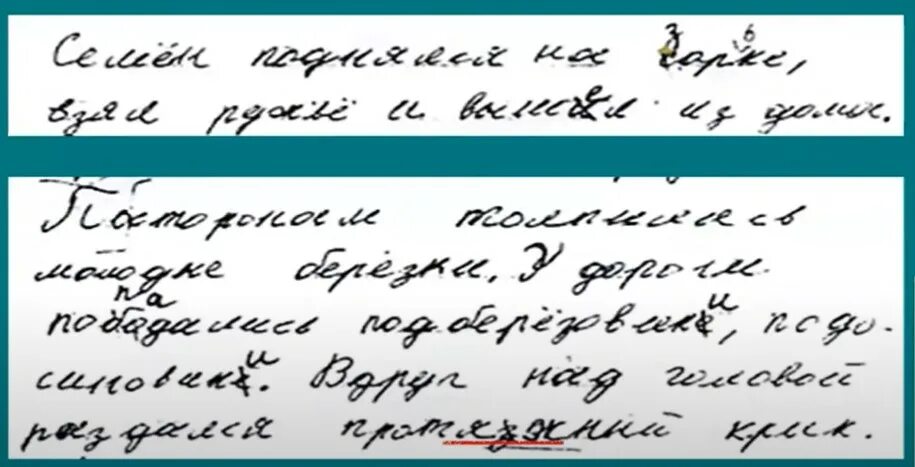 Семён поднялся на зарке,
взял ружьё и вышел из дома.
Посторонам толпились
молодне берёзки. У дороги
попадались подберёзовики, подо-
синовики. Вдруг над головой
раздался протязжный крик.